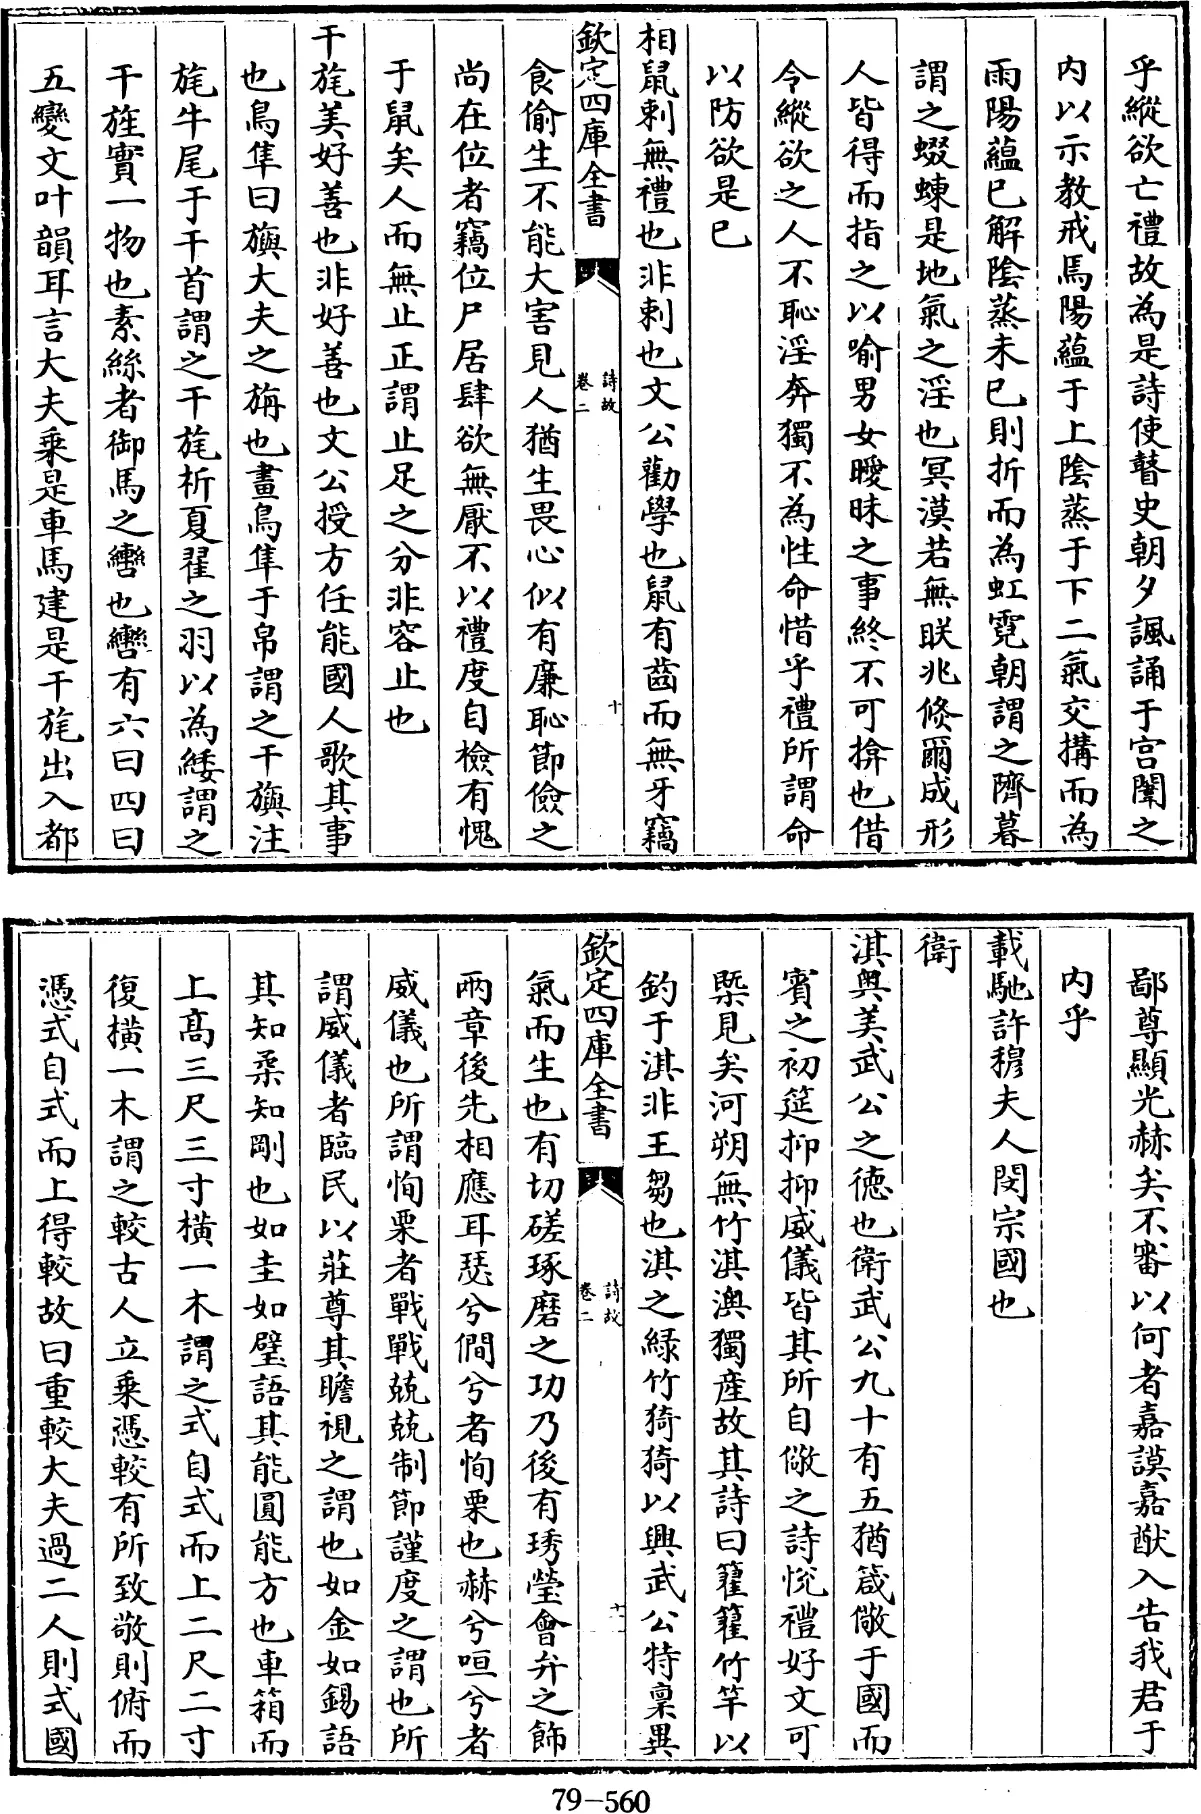 乎縱欲亡禮故為是詩使瞽史朝夕諷誦于宫闈之
内以示教戒焉陽藴于上隂蒸于下二氣交搆而為
雨陽藴已解隂蒸未已則折而為虹霓朝謂之隮暮
謂之蝃蝀是地氣之淫也冥漠若無眹兆倐爾成形
人皆得而指之以喻男女曖昧之事終不可揜也借
令縱欲之人不恥淫奔獨不為性命惜乎禮所謂命
以防欲是已
相鼠刺無禮也非刺也文公勸學也鼠有齒而無牙竊
欽定四庫全書
詩故
卷二
十
食偷生不能大害見人猶生畏心似有廉恥節儉之
尚在位者竊位尸居肆欲無厭不以禮度自檢有愧
于鼠矣人而無止正謂止足之分非容止也
干旄美好善也非好善也文公授方任能國人歌其事
也鳥隼曰旟大夫之旃也畫鳥隼于帛謂之干旟注
旄牛尾于干首謂之干旄析夏翟之羽以為緌謂之
干旌實一物也素絲者御馬之轡也轡有六曰四曰
五變文叶韻耳言大夫乘是車馬建是干旄出入都
鄙尊顯光赫矣不審以何者嘉謨嘉猷入告我君于
内乎
載馳許穆夫人閔宗國也
衛
淇奥美武公之德也衛武公九十有五猶箴儆于國而
賓之初筵抑抑威儀皆其所自儆之詩悦禮好文可
槩見矣河朔無竹淇澳獨産故其詩曰籊籊竹竿以
釣于淇非王芻也淇之緑竹猗猗以興武公特禀異
欽定四庫全書
詩故
卷二
十一
氣而生也有切磋琢磨之功乃後有琇瑩會弁之飾
兩章後先相應耳瑟兮僩兮者恂栗也赫兮咺兮者
威儀也所謂恂栗者戰戰兢兢制節謹度之謂也所
謂威儀者臨民以莊尊其瞻視之謂也如金如錫語
其知柔知剛也如圭如璧語其能圓能方也車箱而
上髙三尺三寸横一木謂之式自式而上二尺二寸
復横一木謂之較古人立乘憑較有所致敬則俯而
憑式自式而上得較故曰重較大夫過二人則式國
79-560